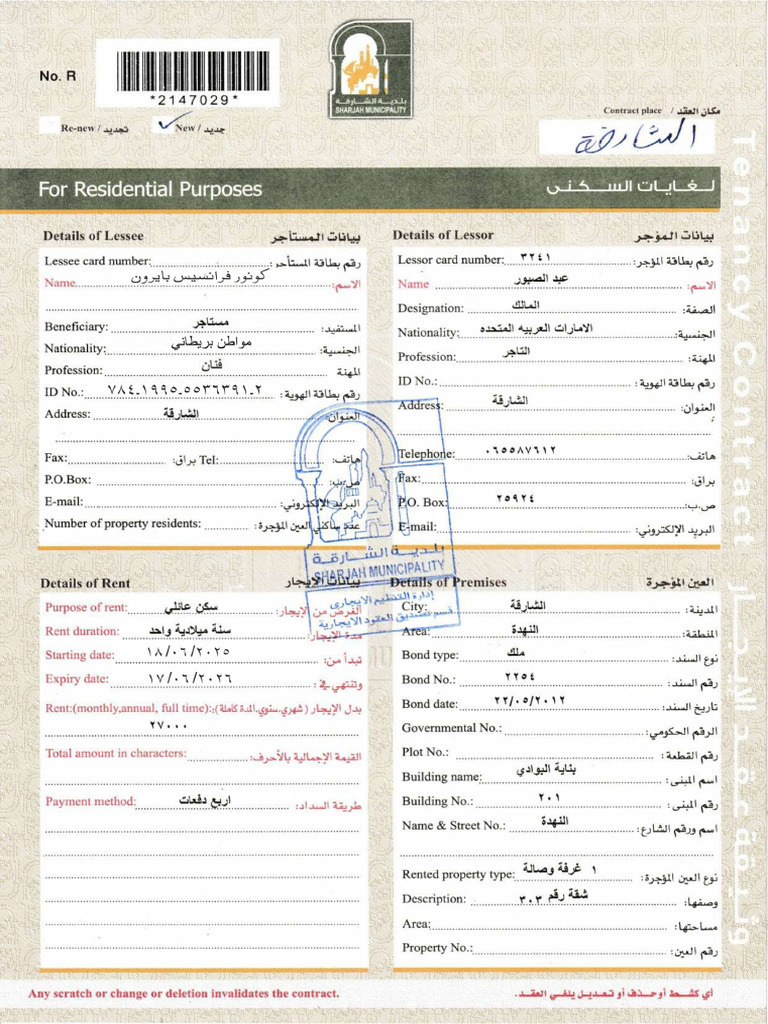 No. R
*2147029*
بلدية الشارقة
SHARJAH MUNICIPALITY
Re-new / تجديد
✓ New / جديد
Contract place / مكان العقد
الشارقة
For Residential Purposes
لغايات السكنى
Tenancy Contract
Details of Lessee بيانات المستأجر
Lessee card number: رقم بطاقة المستأجر:
Name كونور فرانسيس بايرون الاسم:
Beneficiary: مستاجر المستفيد:
Nationality: مواطن بريطاني الجنسية:
Profession: فنان المهنة
ID No.: ٧٨٤-١٩٩٥-٥٥٣٦٣٩١-٢ رقم بطاقة الهوية:
Address: الشارقة العنوان:
Fax: براق: Tel: هاتف:
P.O.Box: ص.ب:
E-mail: البريد الإلكتروني:
Number of property residents: عدد ساكني العين المؤجرة:
Details of Lessor بيانات المؤجر
Lessor card number: ٣٢٤١ رقم بطاقة المؤجر:
Name عبد الصبور الاسم:
Designation: المالك الصفة:
Nationality: الامارات العربيه المتحده الجنسية:
Profession: التاجر المهنة:
ID No.: رقم بطاقة الهوية:
Address: الشارقة العنوان:
Telephone: ٠٦٥٥٨٧٦١٢ هاتف:
Fax: براق:
P.O. Box: ٢٥٩٢٤ ص.ب:
E-mail: البريد الإلكتروني:
بلدية الشارقة
SHARJAH MUNICIPALITY
إدارة التنظيم الايجاري
قسم تصديق العقود الايجارية
Details of Rent بيانات الإيجار
Purpose of rent: سكن عائلي الغرض من الإيجار:
Rent duration: سنة ميلادية واحد مدة الإيجار:
Starting date: ١٨/٠٦/٢٠٢٥ تبدأ من:
Expiry date: ١٧/٠٦/٢٠٢٦ وتنتهي في:
Rent:(monthly,annual, full time): بدل الإيجار (شهري،سنوي،المدة كاملة):
٢٧٠٠٠
Total amount in characters: القيمة الإجمالية بالأحرف:
Payment method: اربع دفعات طريقة السداد:
Details of Premises العين المؤجرة
City: الشارقة المدينة:
Area: النهدة المنطقة:
Bond type: ملك نوع السند:
Bond No.: ٢٢٥٤ رقم السند:
Bond date: ٢٢/٠٥/٢٠١٢ تاريخ السند:
Governmental No.: الرقم الحكومي:
Plot No.: رقم القطعة:
Building name: بناية البوادي اسم المبنى:
Building No.: ٢٠١ رقم المبنى:
Name & Street No.: النهدة اسم ورقم الشارع:
Rented property type: ١ غرفة وصالة نوع العين المؤجرة:
Description: شقة رقم ٣٠٣ وصفها:
Area: مساحتها:
Property No.: رقم العين:
Any scratch or change or deletion invalidates the contract.
أي كشط أو حذف أو تعديل يلغي العقد.